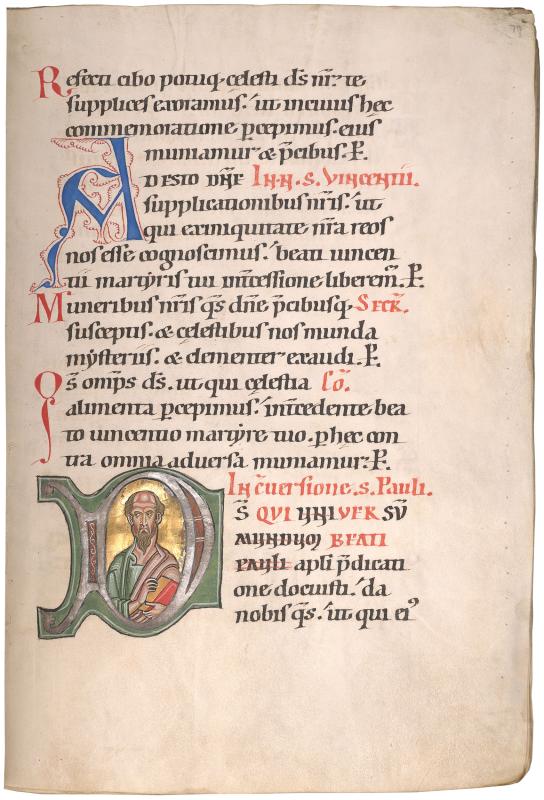 79
Refecti cibo potuq; celesti d̄s nr̄. te
supplices exoramus. ut in cuius hec
commemoratione p̄cepimus. eius
muniamur & p̄cibus. P̄.
ADESTO DN̄E IN N. S. VINCENTII.
supplicationibus nr̄is. ut
qui ex iniquitate nr̄a reos
nos esse cognoscimus. beati uincen
tii martyris tui int̄cessione liberem̄. P̄.
Muneribus nr̄is q̄s dn̄e p̄cibusq; SECR̄.
susceptis. & celestibus nos munda
mysteriis. & clementer exaudi. P̄.
Q̄s omp̄s d̄s. ut qui cęlestia Cō.
alimenta p̄cepimus. int̄cedente bea
to uincentio martyre tuo. p̄ hec con
tra omnia aduersa muniamur. P̄.
IN C̄uersione. s. Pauli.
D̄S QUI UNIVERSŪ
MUNDUM BEATI
PAULI apl̄i p̄dicati
one docuisti. da
nobis q̄s. ut qui ei⁹